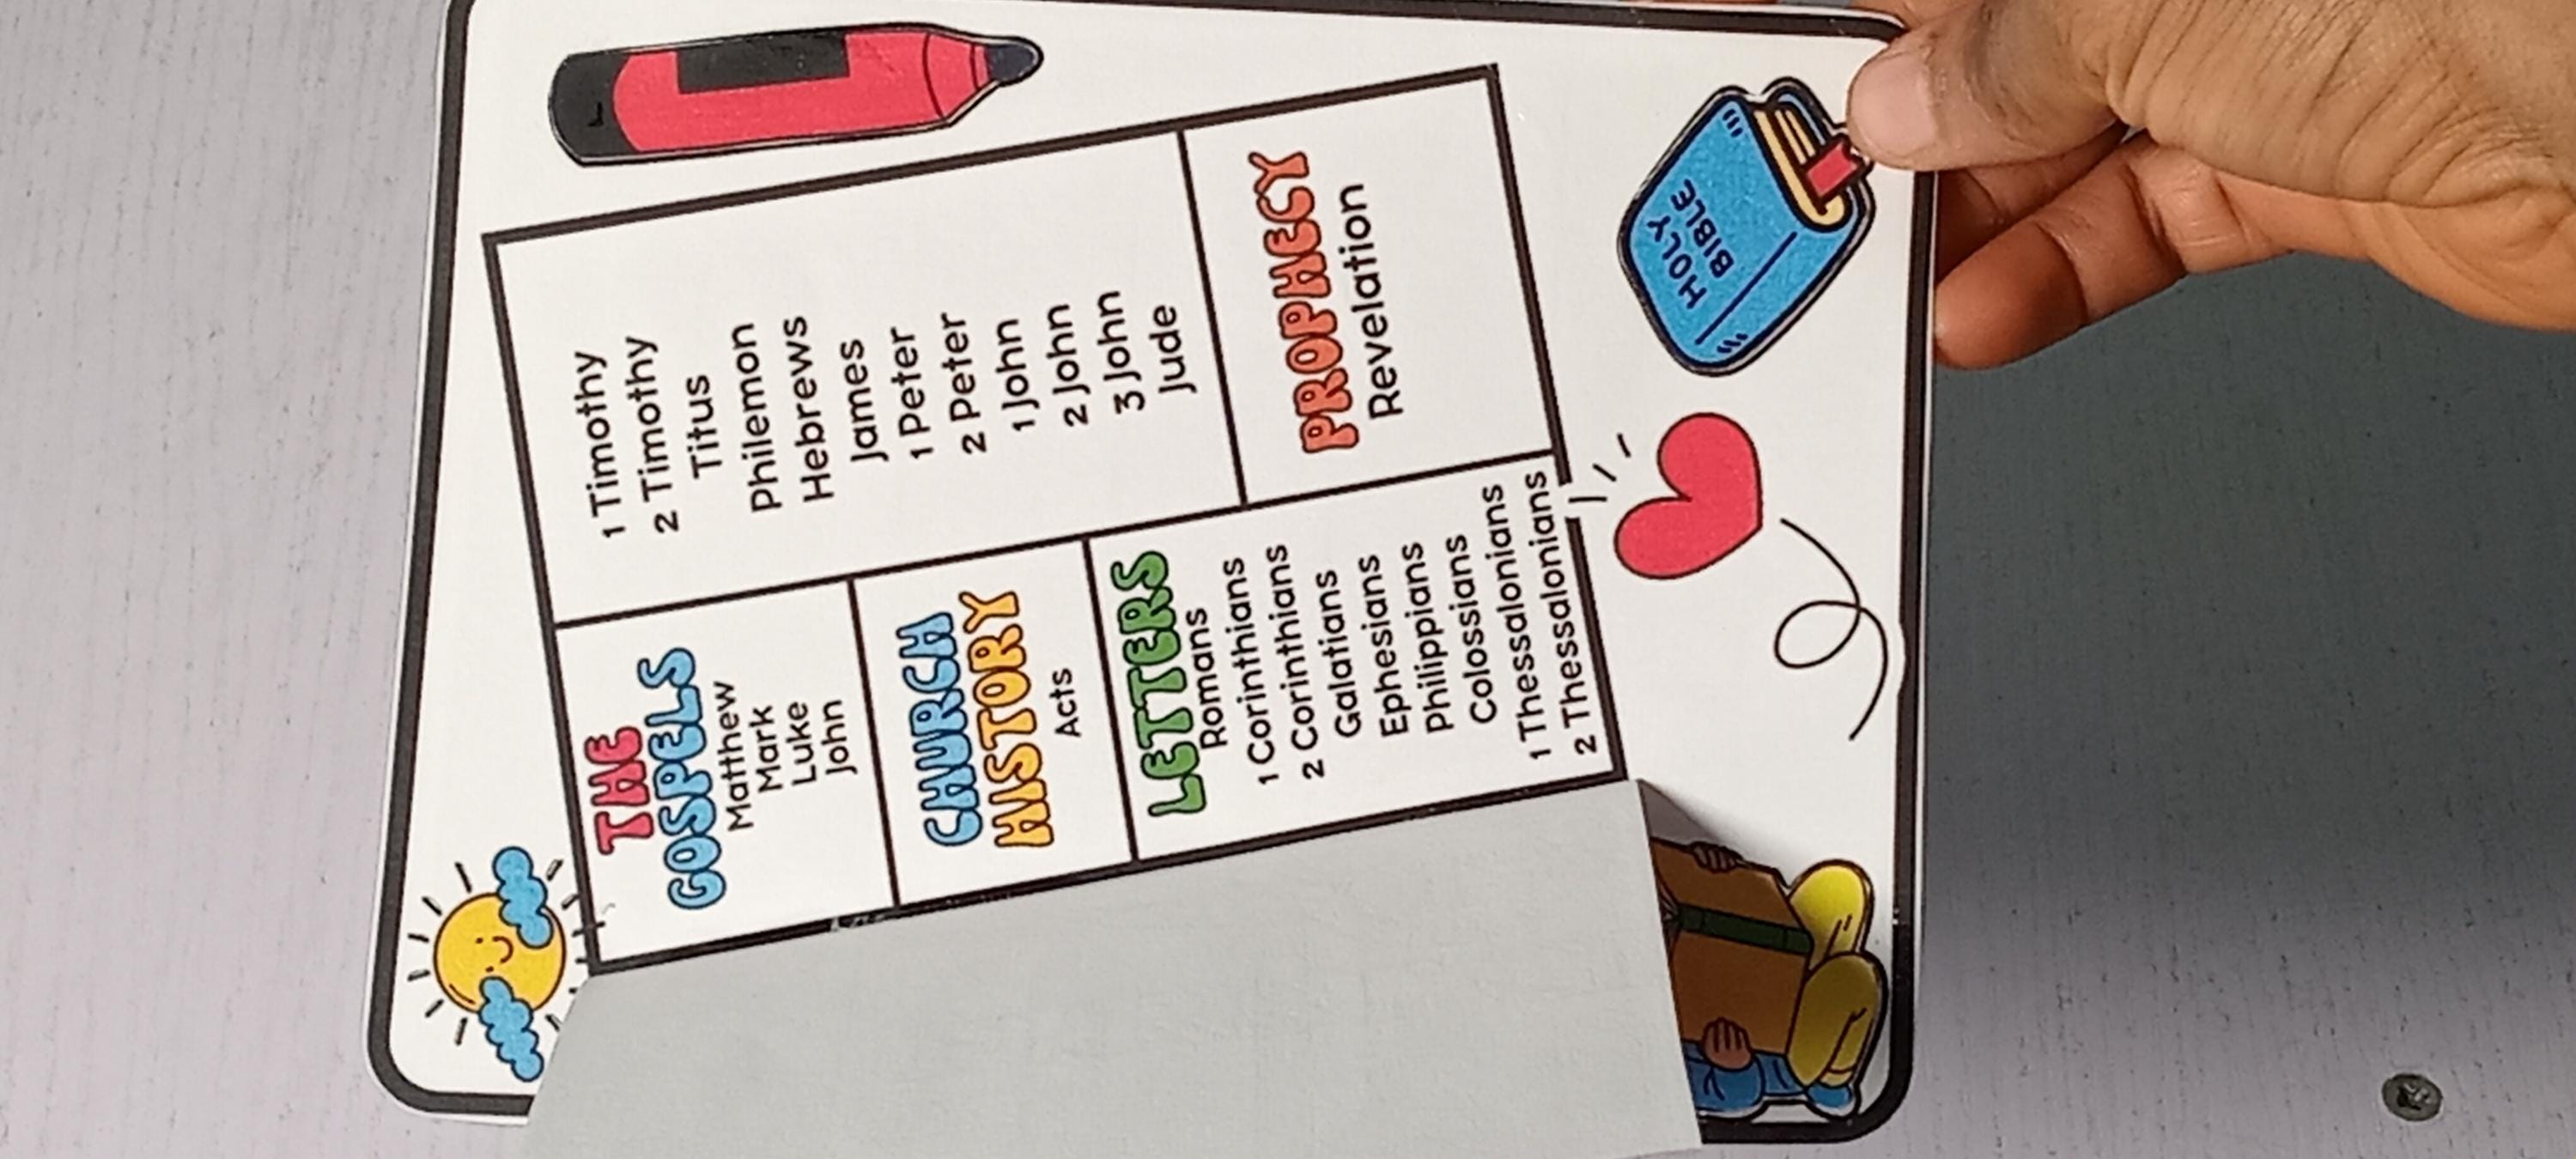 THE
GOSPELS
Matthew
Mark
Luke
John
CHURCH
HISTORY
Acts
LETTERS
Romans
1 Corinthians
2 Corinthians
Galatians
Ephesians
Philippians
Colossians
1 Thessalonians
2 Thessalonians
1 Timothy
2 Timothy
Titus
Philemon
Hebrews
James
1 Peter
2 Peter
1 John
2 John
3 John
Jude
PROPHECY
Revelation
HOLY
BIBLE